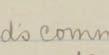 d's comm